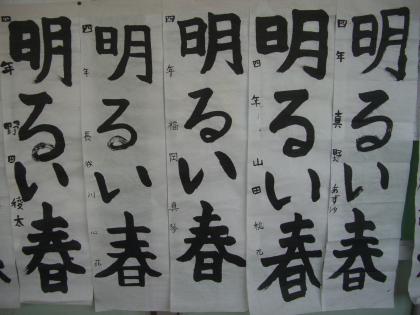 明るい春
四年 真野 あずさ
明るい春
四年 山田 桃花
明るい春
四年 福岡 真琴
明るい春
四年 長谷川 心花
明るい春
四年 野田 稜太